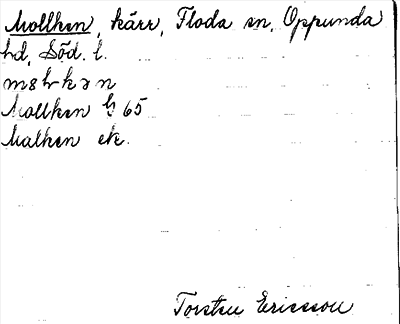 Mollken, kärr, Floda sn, Oppunda
hd, Söd. l.
Mollken h 65
Malken ek.
Torsten Ericsson